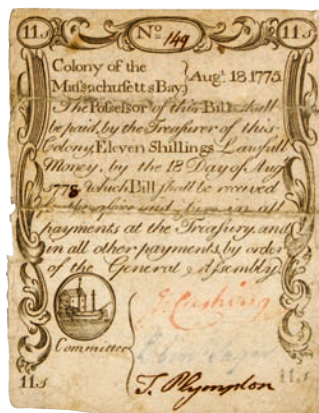 11s No 149 11s
Colony of the
Massachusetts Bay} Augt. 18 1775.
The Possessor of this Bill shall
be paid, by the Treasurer of this
Colony, Eleven Shillings Lawfull
Money, by the 18 Day of Augt
1778 which Bill shall be received
in all
payments at the Treasury, and
in all other payments, by order
of the General Assembly
J. Cushing
Committee
T. Plympton
11s 11s